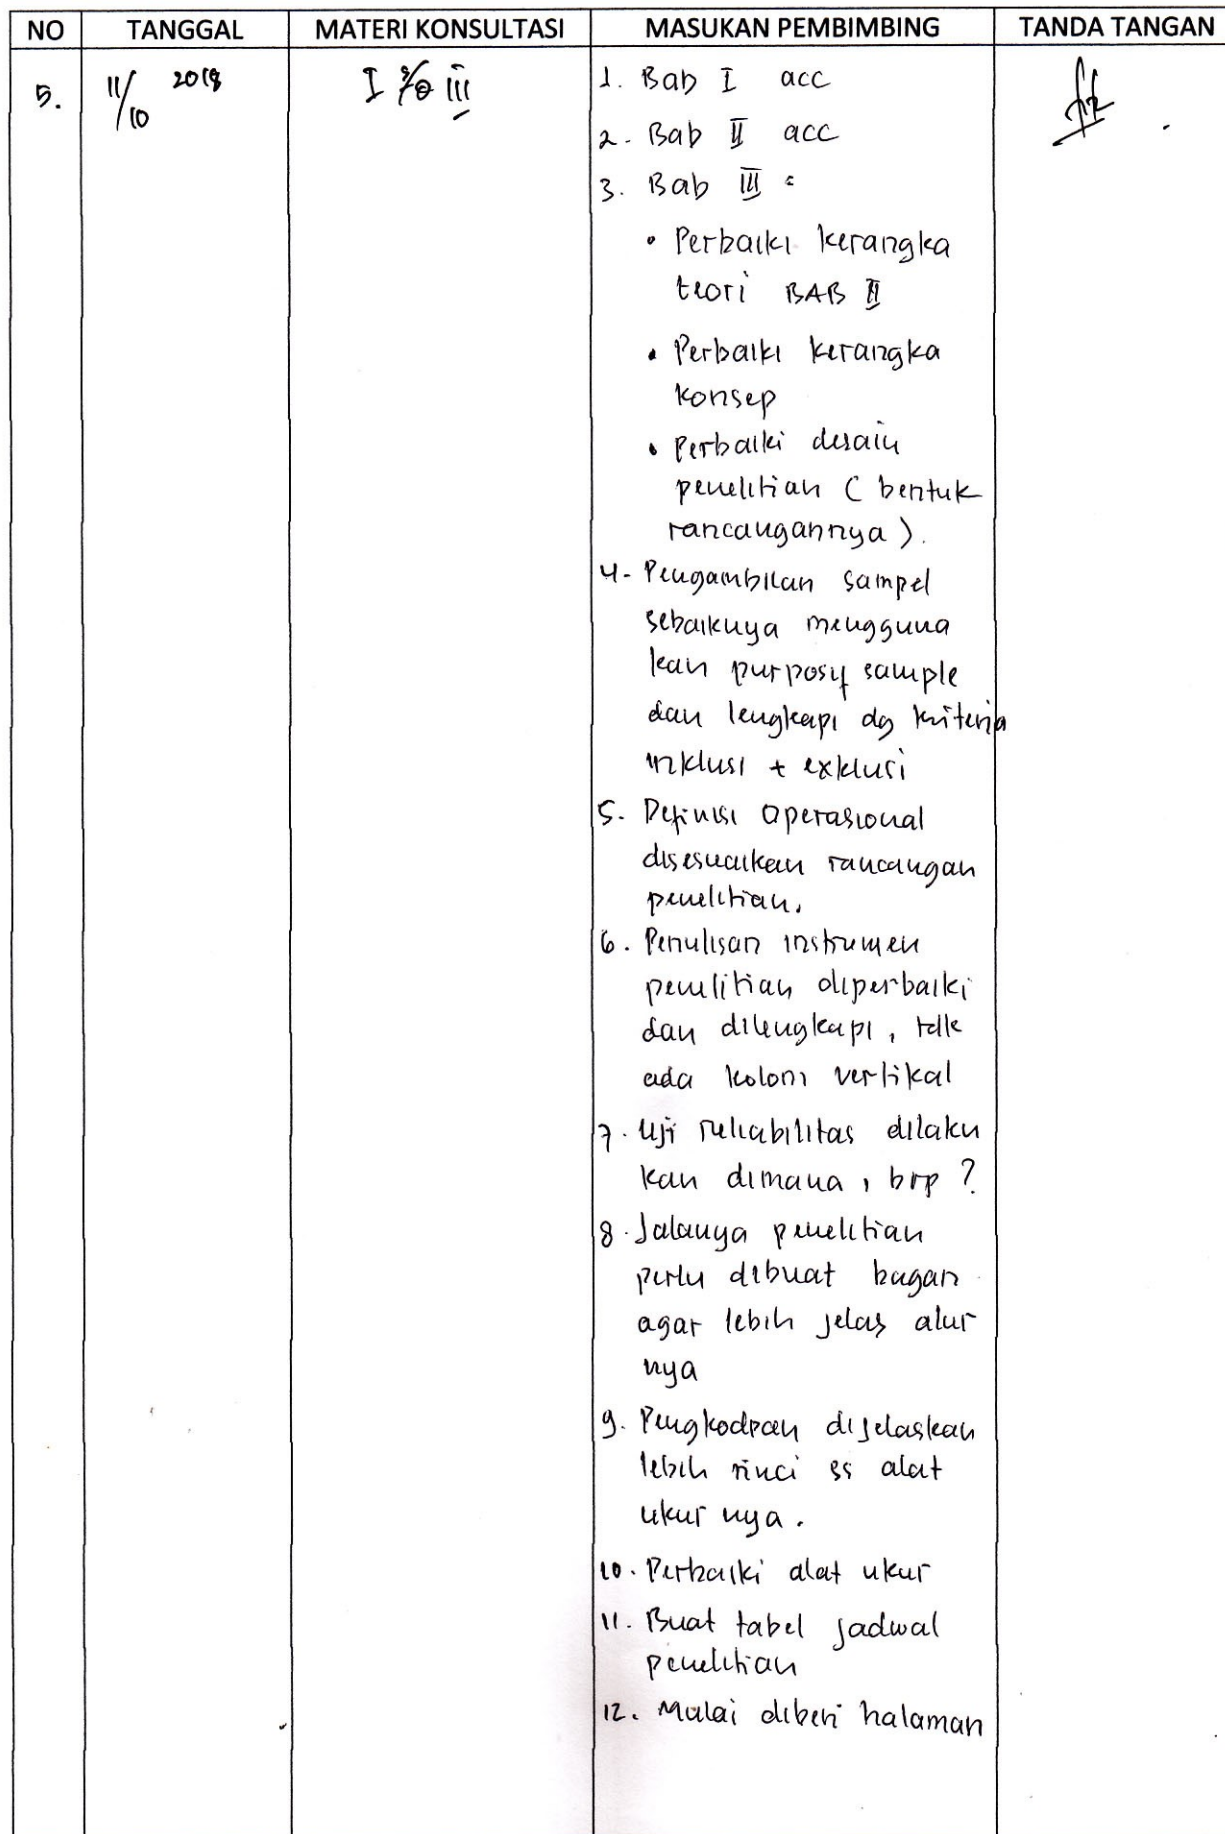 NO TANGGAL MATERI KONSULTASI MASUKAN PEMBIMBING TANDA TANGAN
5. 11/10 2018 I III
1. Bab I acc
2. Bab II acc
3. Bab III :
• Perbaiki kerangka
teori BAB II
• Perbaiki kerangka
konsep
• Perbaiki desain
penelitian ( bentuk
rancangannya ).
4. Pengambilan sampel
sebaiknya mengguna
kan purposif sample
dan lengkapi dg kriteria
inklusi + exklusi
5. Definisi Operasional
disesuaikan rancangan
penelitian.
6. Penulisan instrumen
penelitian diperbaiki
dan dilengkapi, tdk
ada kolom vertikal
7. Uji reliabilitas dilaku
kan dimana, brp ?
8. Jalanya penelitian
perlu dibuat bagan
agar lebih jelas alur
nya
9. Pengkodean dijelaskan
lebih rinci ss alat
ukur nya.
10. Perbaiki alat ukur
11. Buat tabel jadwal
penelitian
12. Mulai diberi halaman